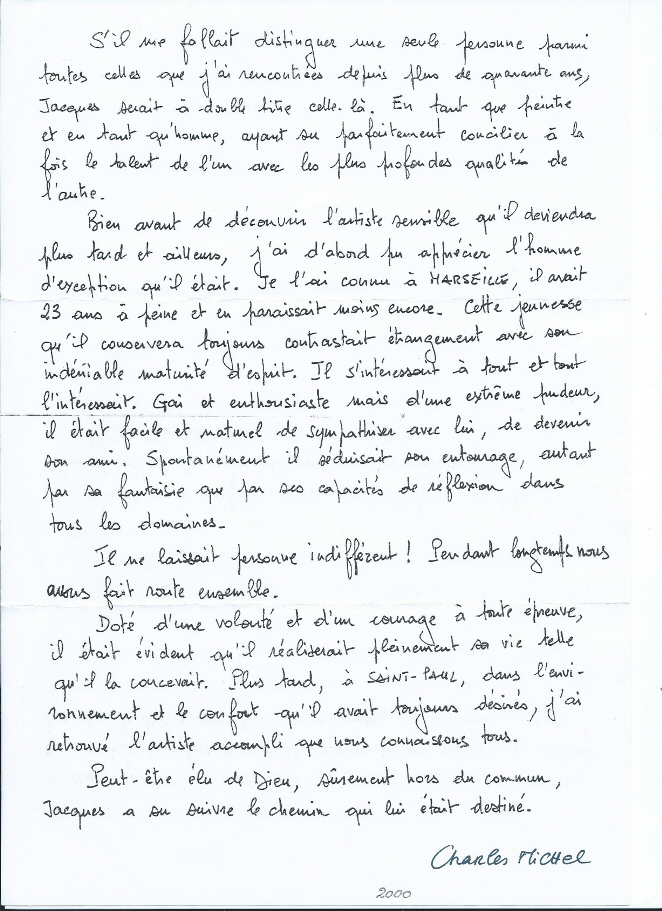 S'il me fallait distinguer une seule personne parmi
toutes celles que j'ai rencontrées depuis plus de quarante ans,
Jacques serait à double titre celle-là. En tant que peintre
et en tant qu'homme, ayant su parfaitement concilier à la
fois le talent de l'un avec les plus profondes qualités de
l'autre.
Bien avant de découvrir l'artiste sensible qu'il deviendra
plus tard et ailleurs, j'ai d'abord pu apprécier l'homme
d'exception qu'il était. Je l'ai connu à MARSEILLE, il avait
23 ans à peine et en paraissait moins encore. Cette jeunesse
qu'il conservera toujours contrastait étrangement avec son
indéniable maturité d'esprit. Il s'intéressait à tout et tout
l'intéressait. Gai et enthousiaste mais d'une extrême pudeur,
il était facile et naturel de sympathiser avec lui, de devenir
son ami. Spontanément il séduisait son entourage, autant
par sa fantaisie que par ses capacités de réflexion dans
tous les domaines.
Il ne laissait personne indifférent ! Pendant longtemps nous
avons fait route ensemble.
Doté d'une volonté et d'un courage à toute épreuve,
il était évident qu'il réaliserait pleinement sa vie telle
qu'il la concevait. Plus tard, à SAINT-PAUL, dans l'envi-
ronnement et le confort qu'il avait toujours désirés, j'ai
retrouvé l'artiste accompli que nous connaissons tous.
Peut-être élu de Dieu, sûrement hors du commun,
Jacques a su suivre le chemin qui lui était destiné.
Charles MICHEL
2000